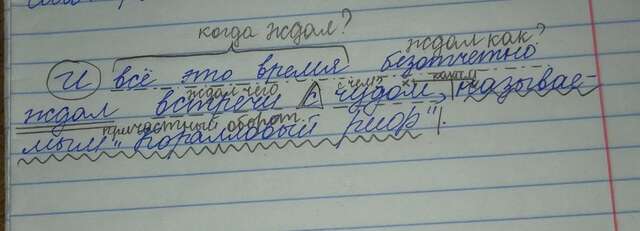 когда ждал?
ждал как?
И всё это время безотчетно
ждал чего
с чем?
каким
ждал встречи с чудом, называе-
причастный оборот
мым "Коралловый риф".